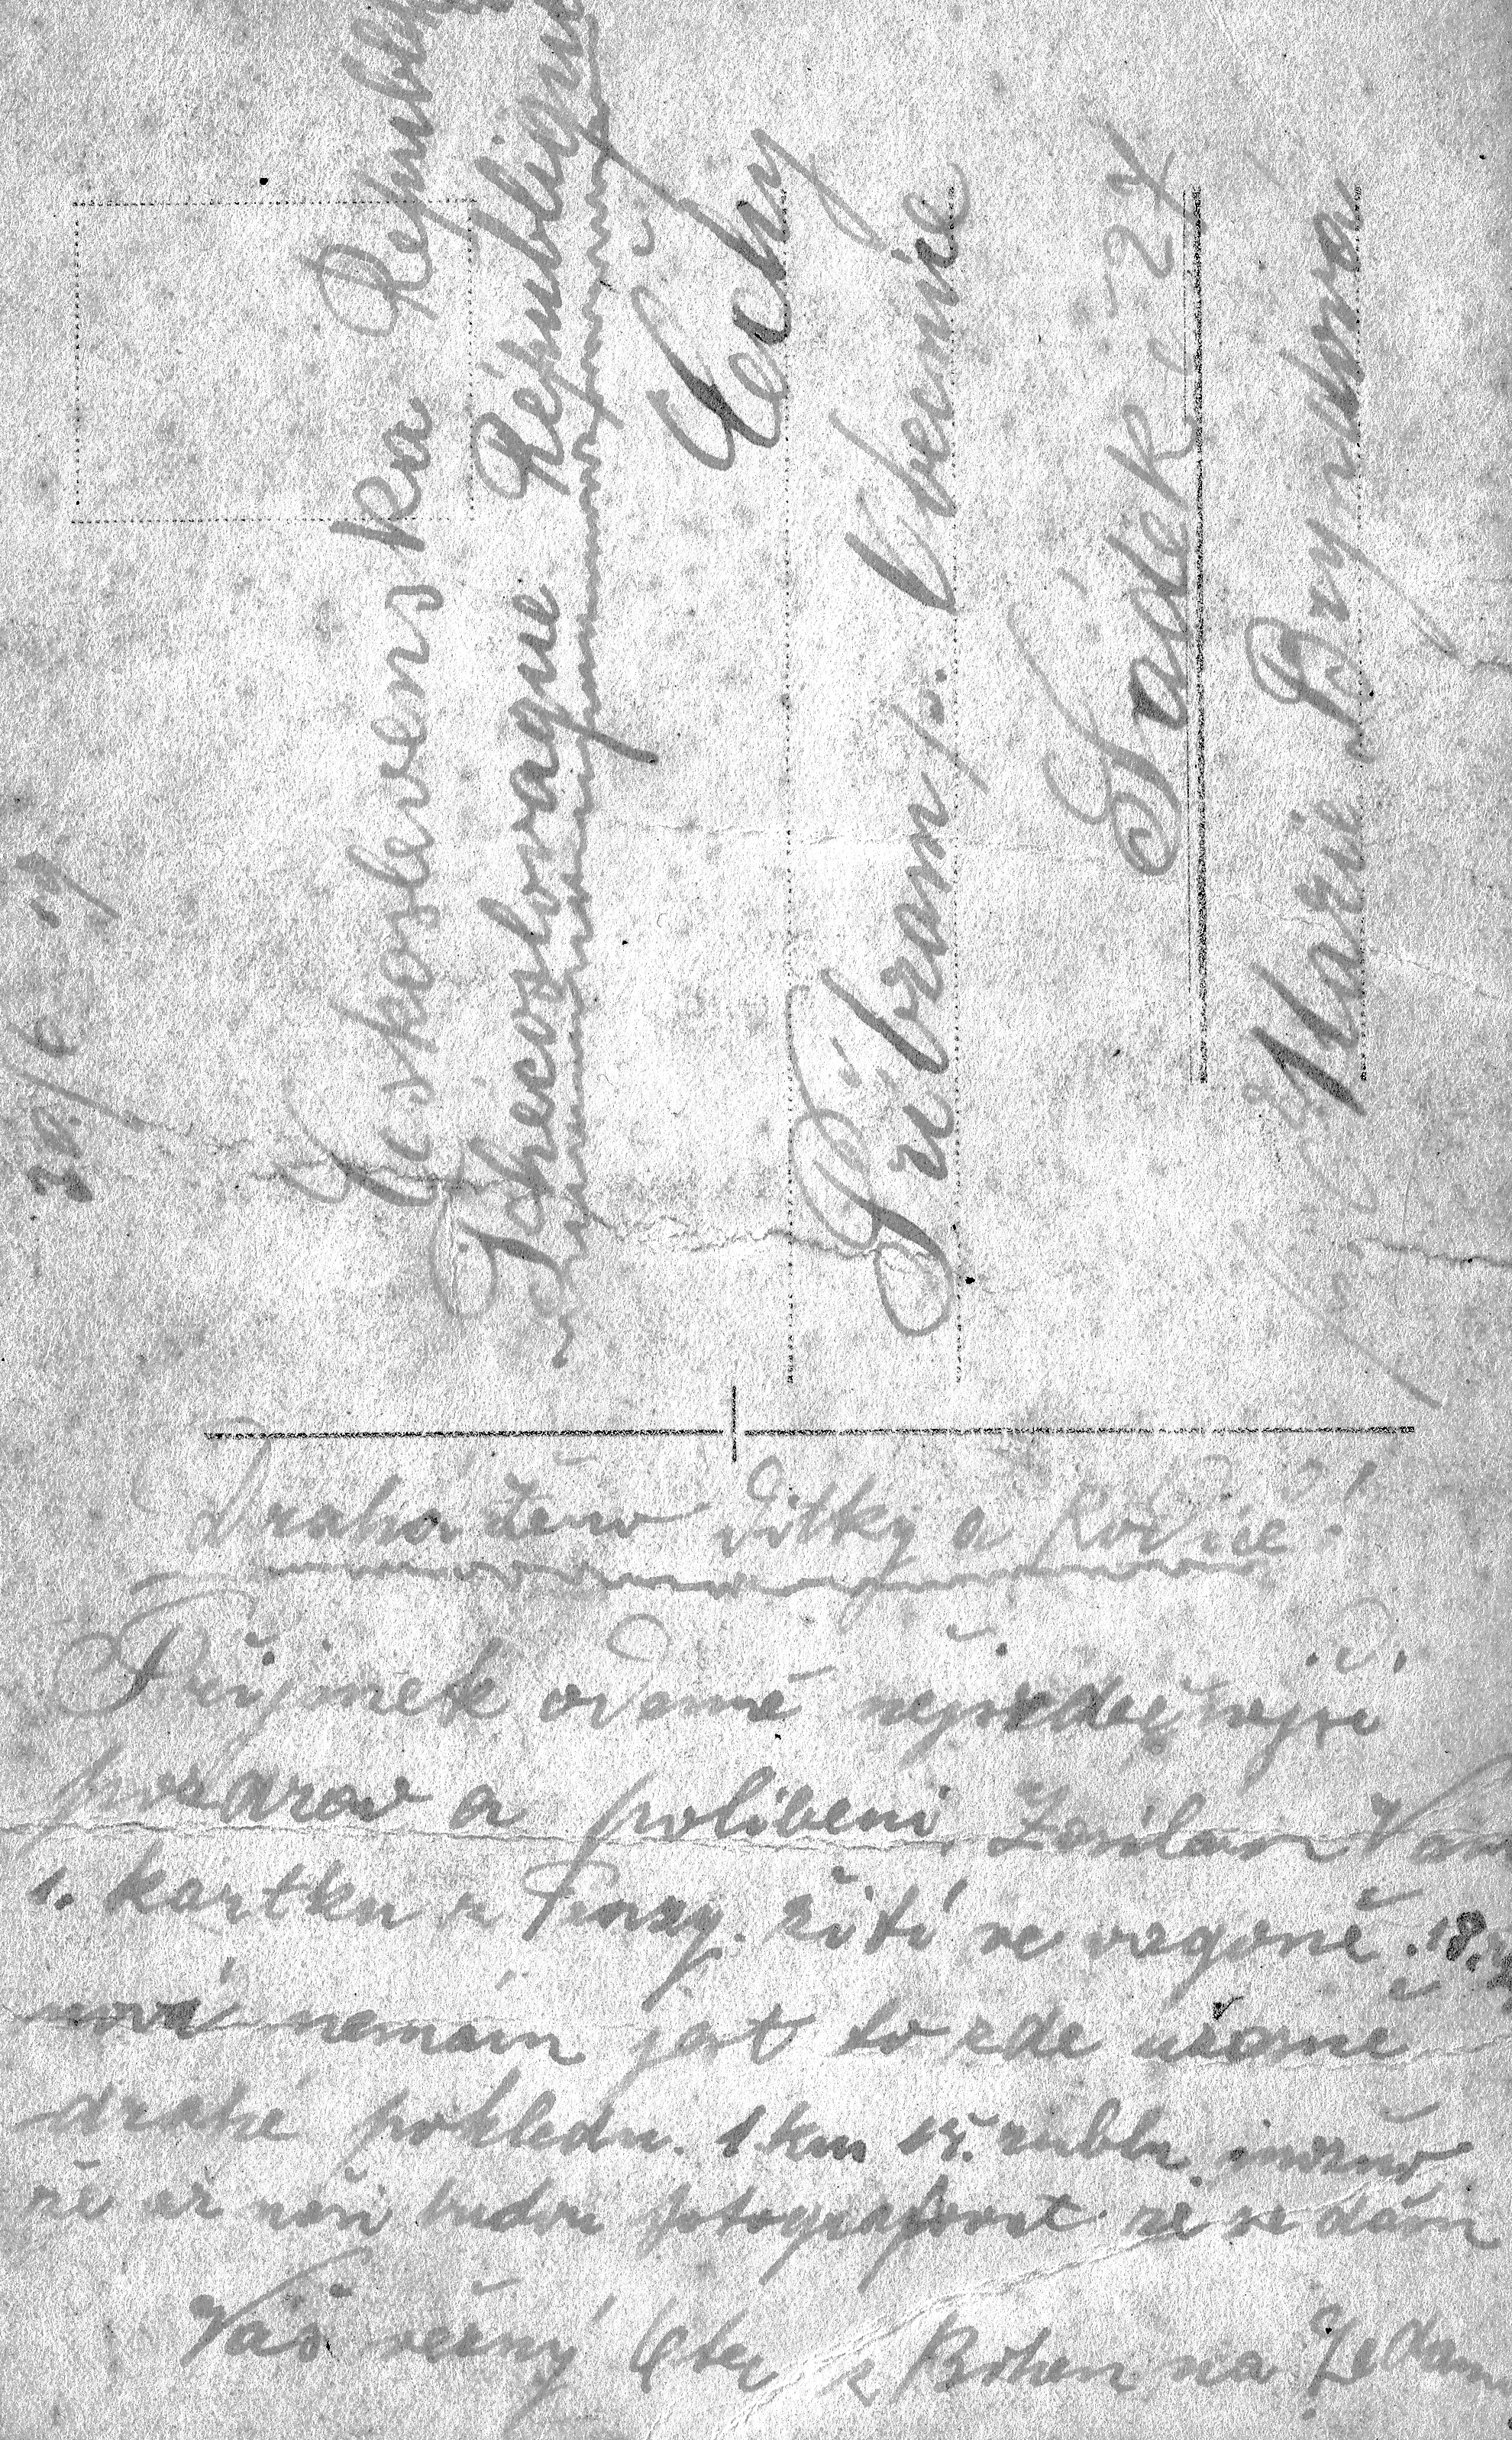 20/6 19
Českoslovens ka Republika
Tchecoslovaque Republique
Čechy
Příbram p. Kvernice
Sádek č -24
Marie Bryndova
Drahá ženo dítky a Rodiče!
Přijmete odemě nejsrdečnejší
pozdrav a políbení, Zasilam Vam
1. kartku z Penzy. žití ve vagoně. 18.
nové nemám jat to zde užasně
drahé pohledn. 1 km 15. rublu. možno
že až naši budou fotografovat že se dám
Váš věrný Otec s Bohem na Zedanou